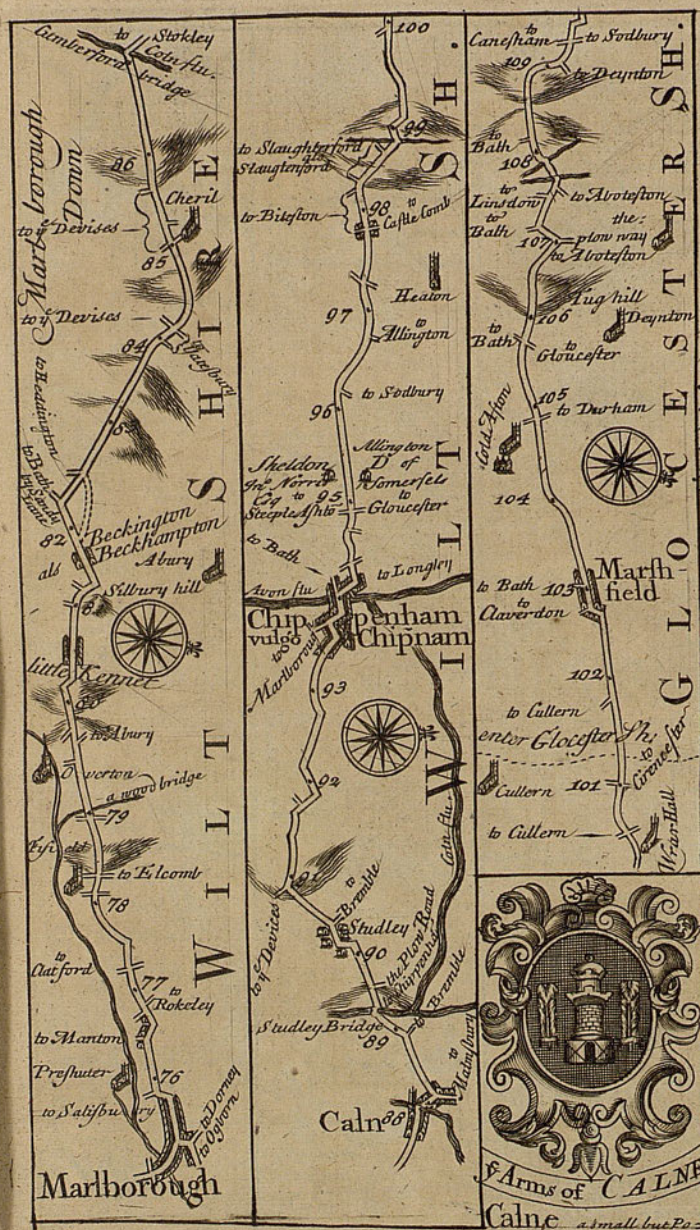 to Stokley
Cumberford
bridge
Coln flu.
Marlborough
Down
86
Cheril
to yͤ Devises
85
to yͤ Devises
84
Yatesbury
to Beddington
83
to Bath
by Sandy
Lane
82
Beckington
als
Beckhampton
Abury
Silbury hill
81
little Kennet
80
to Abury
Overton
a wood bridge
79
Fifield
to Elcomb
78
to
Clatford
77
to
Rokeley
to Manton
Preshuter
76
to Salisbury
to Dorney
to Ogborn
Marlborough
WILT SHIRE
100
99
to Slaughterford
als
Slaugtenford
98
to
Castle Comb
to Biteston
Heaton
97
to
Allington
to Sodbury
96
Allington
D. of
Somersets
Sheldon
Jnͦ. Norris
Esq
to
Steeple Ashto
95
to
Gloucester
to Bath
to Longley
Avon flu
Chip penham
vulgo Chipnam
to
Marlboroug
93
92
91
to
Bremble
Studley
90
to yͤ Devices
the Plow Road
to Chippenha
Coln flu.
to Bremble
Studley Bridge
89
to
Malmsbury
Caln
88
WILTSH.
Canesham
to
to Sodbury
109
to Deynton
to
Bath
108
to
Linsdon
to Aboteston
to
Bath
the
plow way
107
to Aboteston
Tug hill
Deynton
106
to
Bath
to
Gloucester
105
to Durham
Cold Aston
104
Marsh-
field
to Bath
103
to
Claverdon
102
to Cullern
enter Glocester Sh:
to
Cirencester
Cullern
101
to Cullern
Wrax Hall
GLOCESTERSH.
yͤ Arms of CALNE
Calne a small but Bo